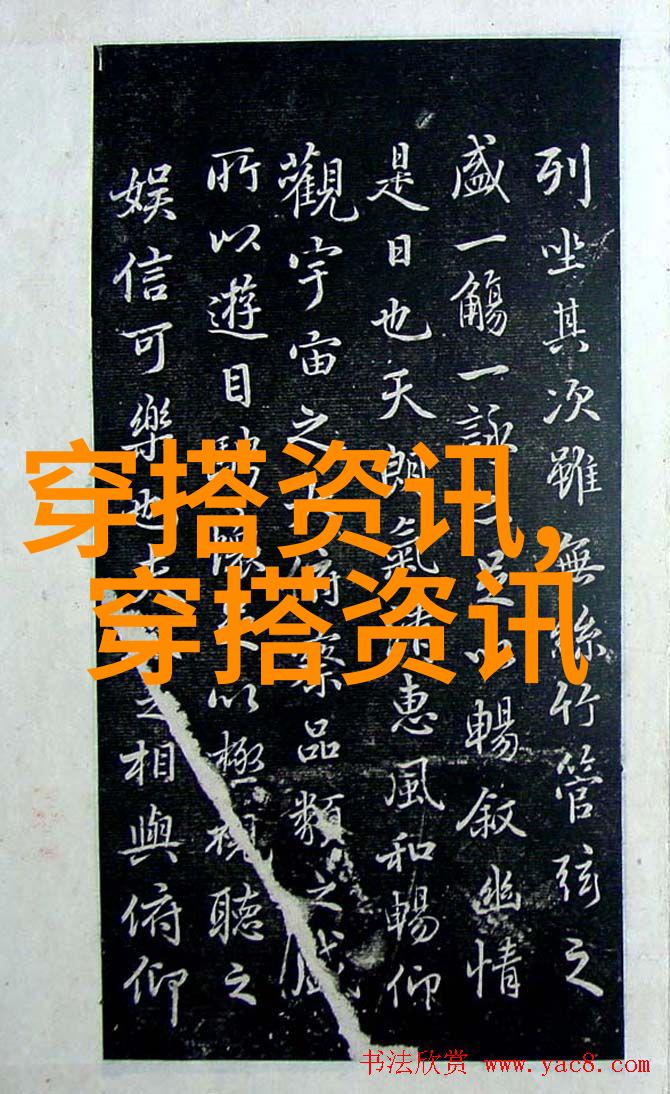 列坐其次雖無絲竹管弦之
盛一觴一詠足以暢叙幽情
是日也天朗氣清惠風和暢仰
觀宇宙之俯察品類之盛
所以遊目騁懷足以極視聽之
娛信可樂也夫之相與俯仰
穿搭资讯,
穿搭资讯
书法欣赏 www.yac8.com